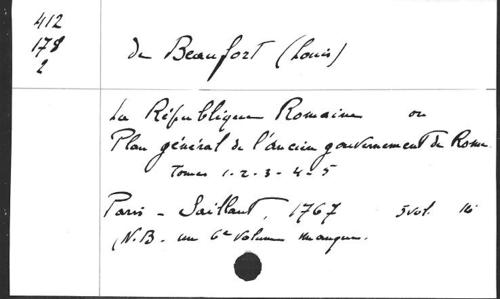 412
178
2
de Beaufort (Louis)
La République Romaine ou
Plan général de l'ancien gouvernement de Rome.
Tomes 1-2-3-4-5
Paris - Saillant, 1767 5 vol. 16
(N.B. un 6e volume manque.